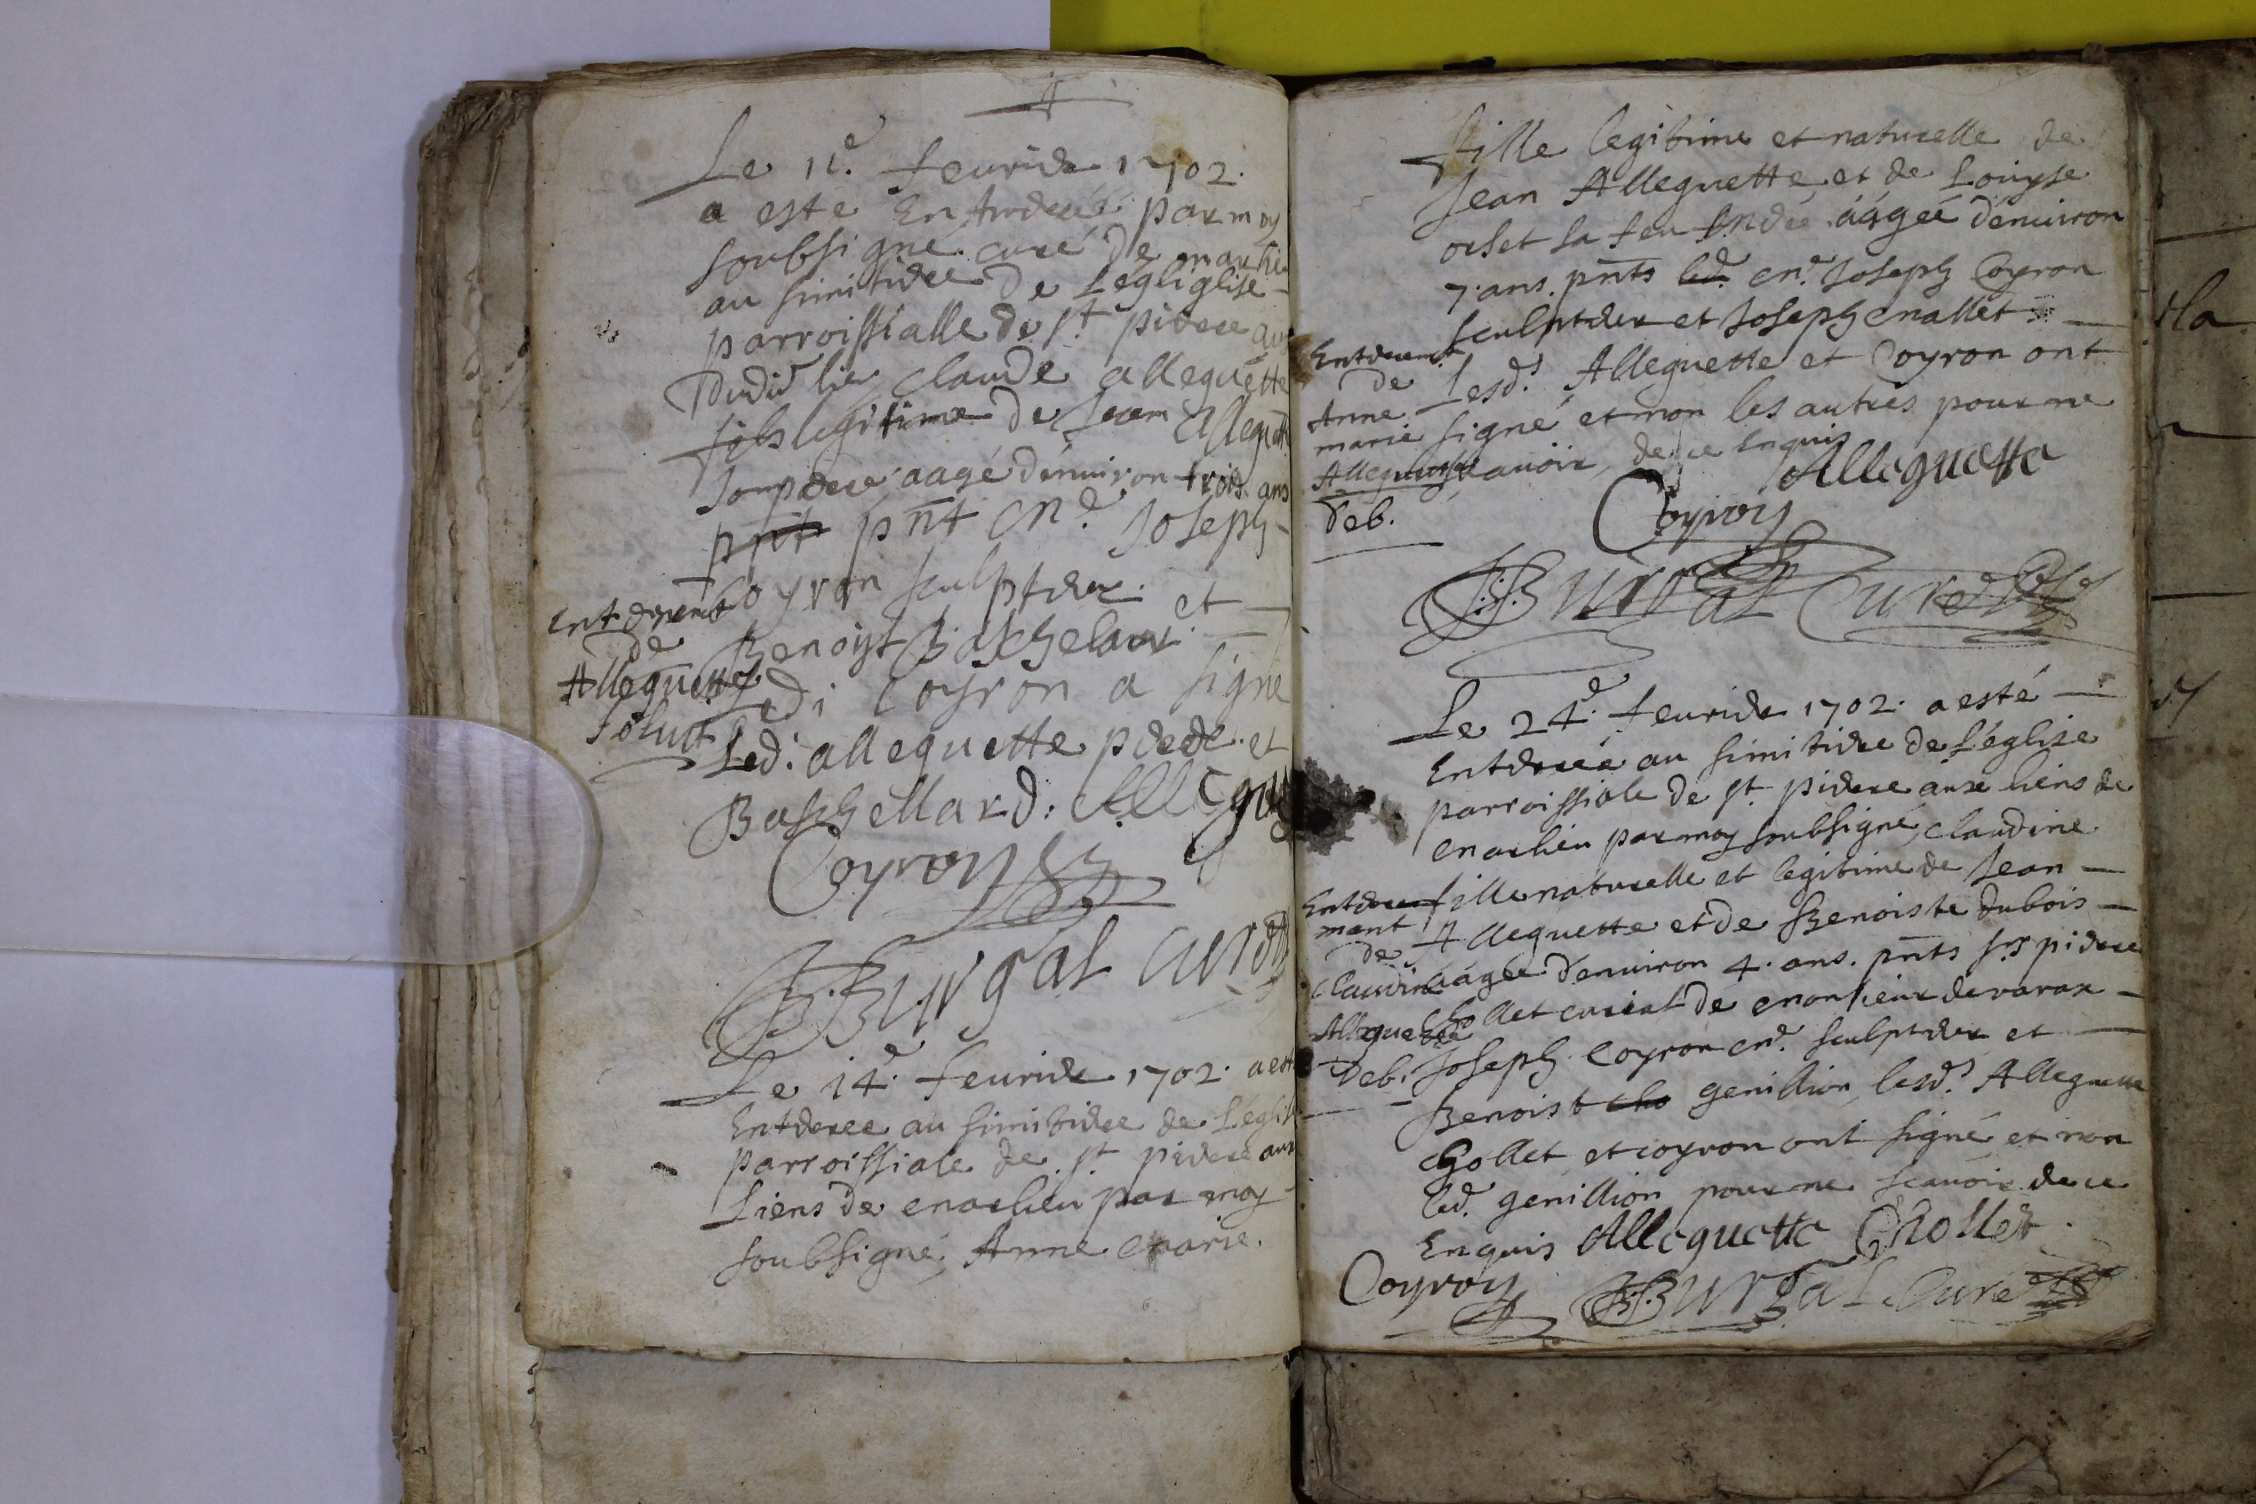 Le 11e. feurier 1702.
a este Enterré par moy
soubsigné curé de marlieu
au simitiere de L'egliglise
parroissialle de st pierre aux
dudit lieu claude alleguette
fils legitime de Jean Alleguette
son pere aagé d'enuiron trois ans
pñt pñt Me. Joseph
Coyron sculpteur et
Benoist Baschelard.
Ledi Coyron a signé
Led. alleguette pere et
Baschellard. Allegue
Coyron
Enterrement
de
Alleguette
soluit
B. Burgat curé
Le 14e. feurier 1702. a esté
Enterree au simitiere de L'eglise
parroissiale de st. pierre aux
Liens de marlieu par moy
soubsigné, Anne marie.
fille legitime et naturelle de
Jean Alleguette et de Louyse
orset sa feu aagée d'enuiron
7. ans. pñts led. Me. Joseph Coyron
sculpteur et Joseph mallet
Lesds. Alleguette et Coyron ont
signé et non les autres pour ne
scauoir, de ce Enquis
Enterremt
de
Anne
marie
Alleguette
deb.
Alleguette
Coyron
B. Burgat Curé
Le 24e. feurier 1702. a esté
Enterrée au simitiere de L'église
parroissiale de st. pierre aux liens de
marlieu par moy soubsigné, claudine
fille naturelle et legitime de Jean
Alleguette et de Benoiste dubois
aagée d'enuiron 4. ans. pñts srs pierre
Chollet curial de monsieur de varax
Joseph Coyron Me. sculpteur et
Benoist cho genillion, lesds. Alleguette
Chollet et coyron ont signé et non
led. genillion pour ne scauoir de ce
Enquis Alleguette Chollet
Enterre
ment
de
Claudine
Alleguette
Deb.
Coyron B. Burgat Curé